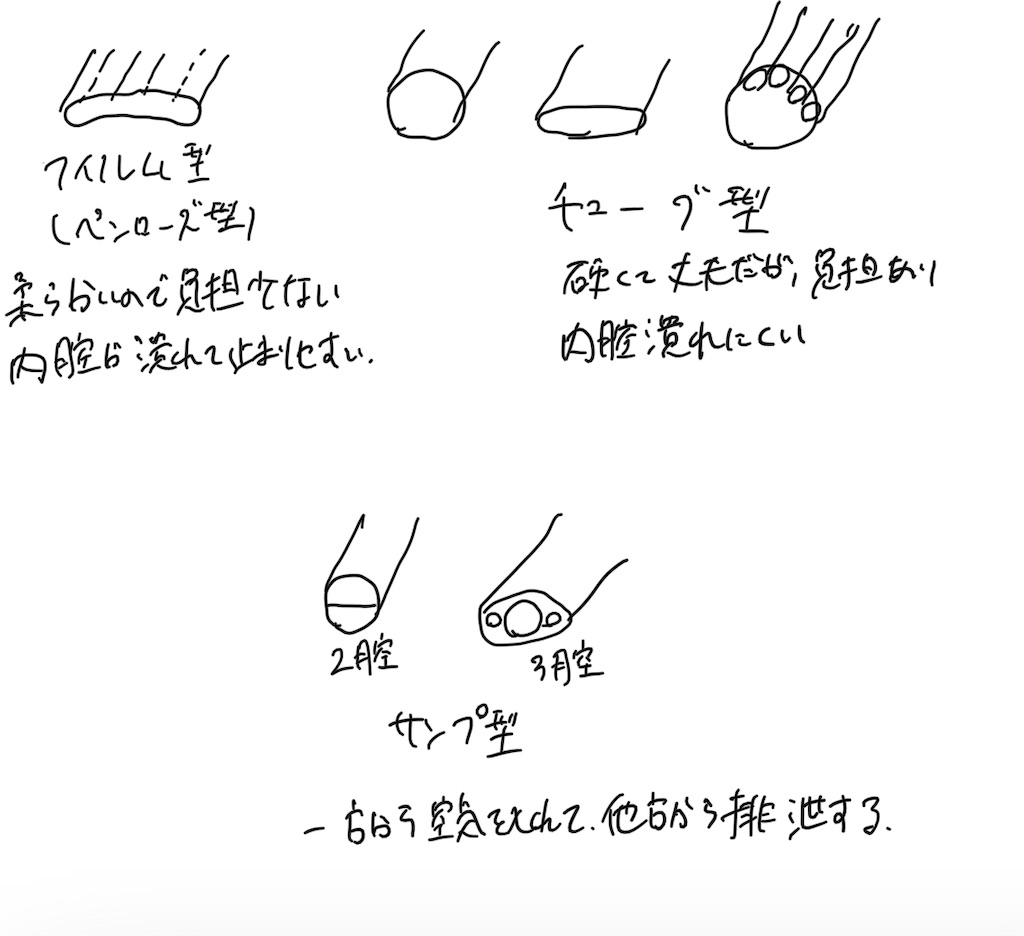 フィルム型
(ペンローズ型)
柔らかいので負担少ない
内腔が潰れて止まりやすい.
チューブ型
硬くて丈夫だが、負担あり
内腔潰れにくい
2腔
3腔
サンプ型
一方から空気を入れて.他方から排泄する.